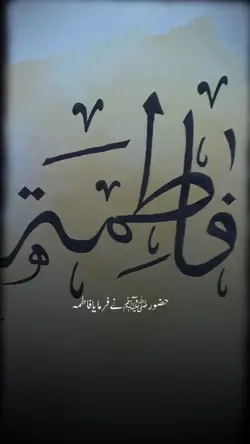 فاطمة
حضور ﷺ نے فرمایا فاطمہ